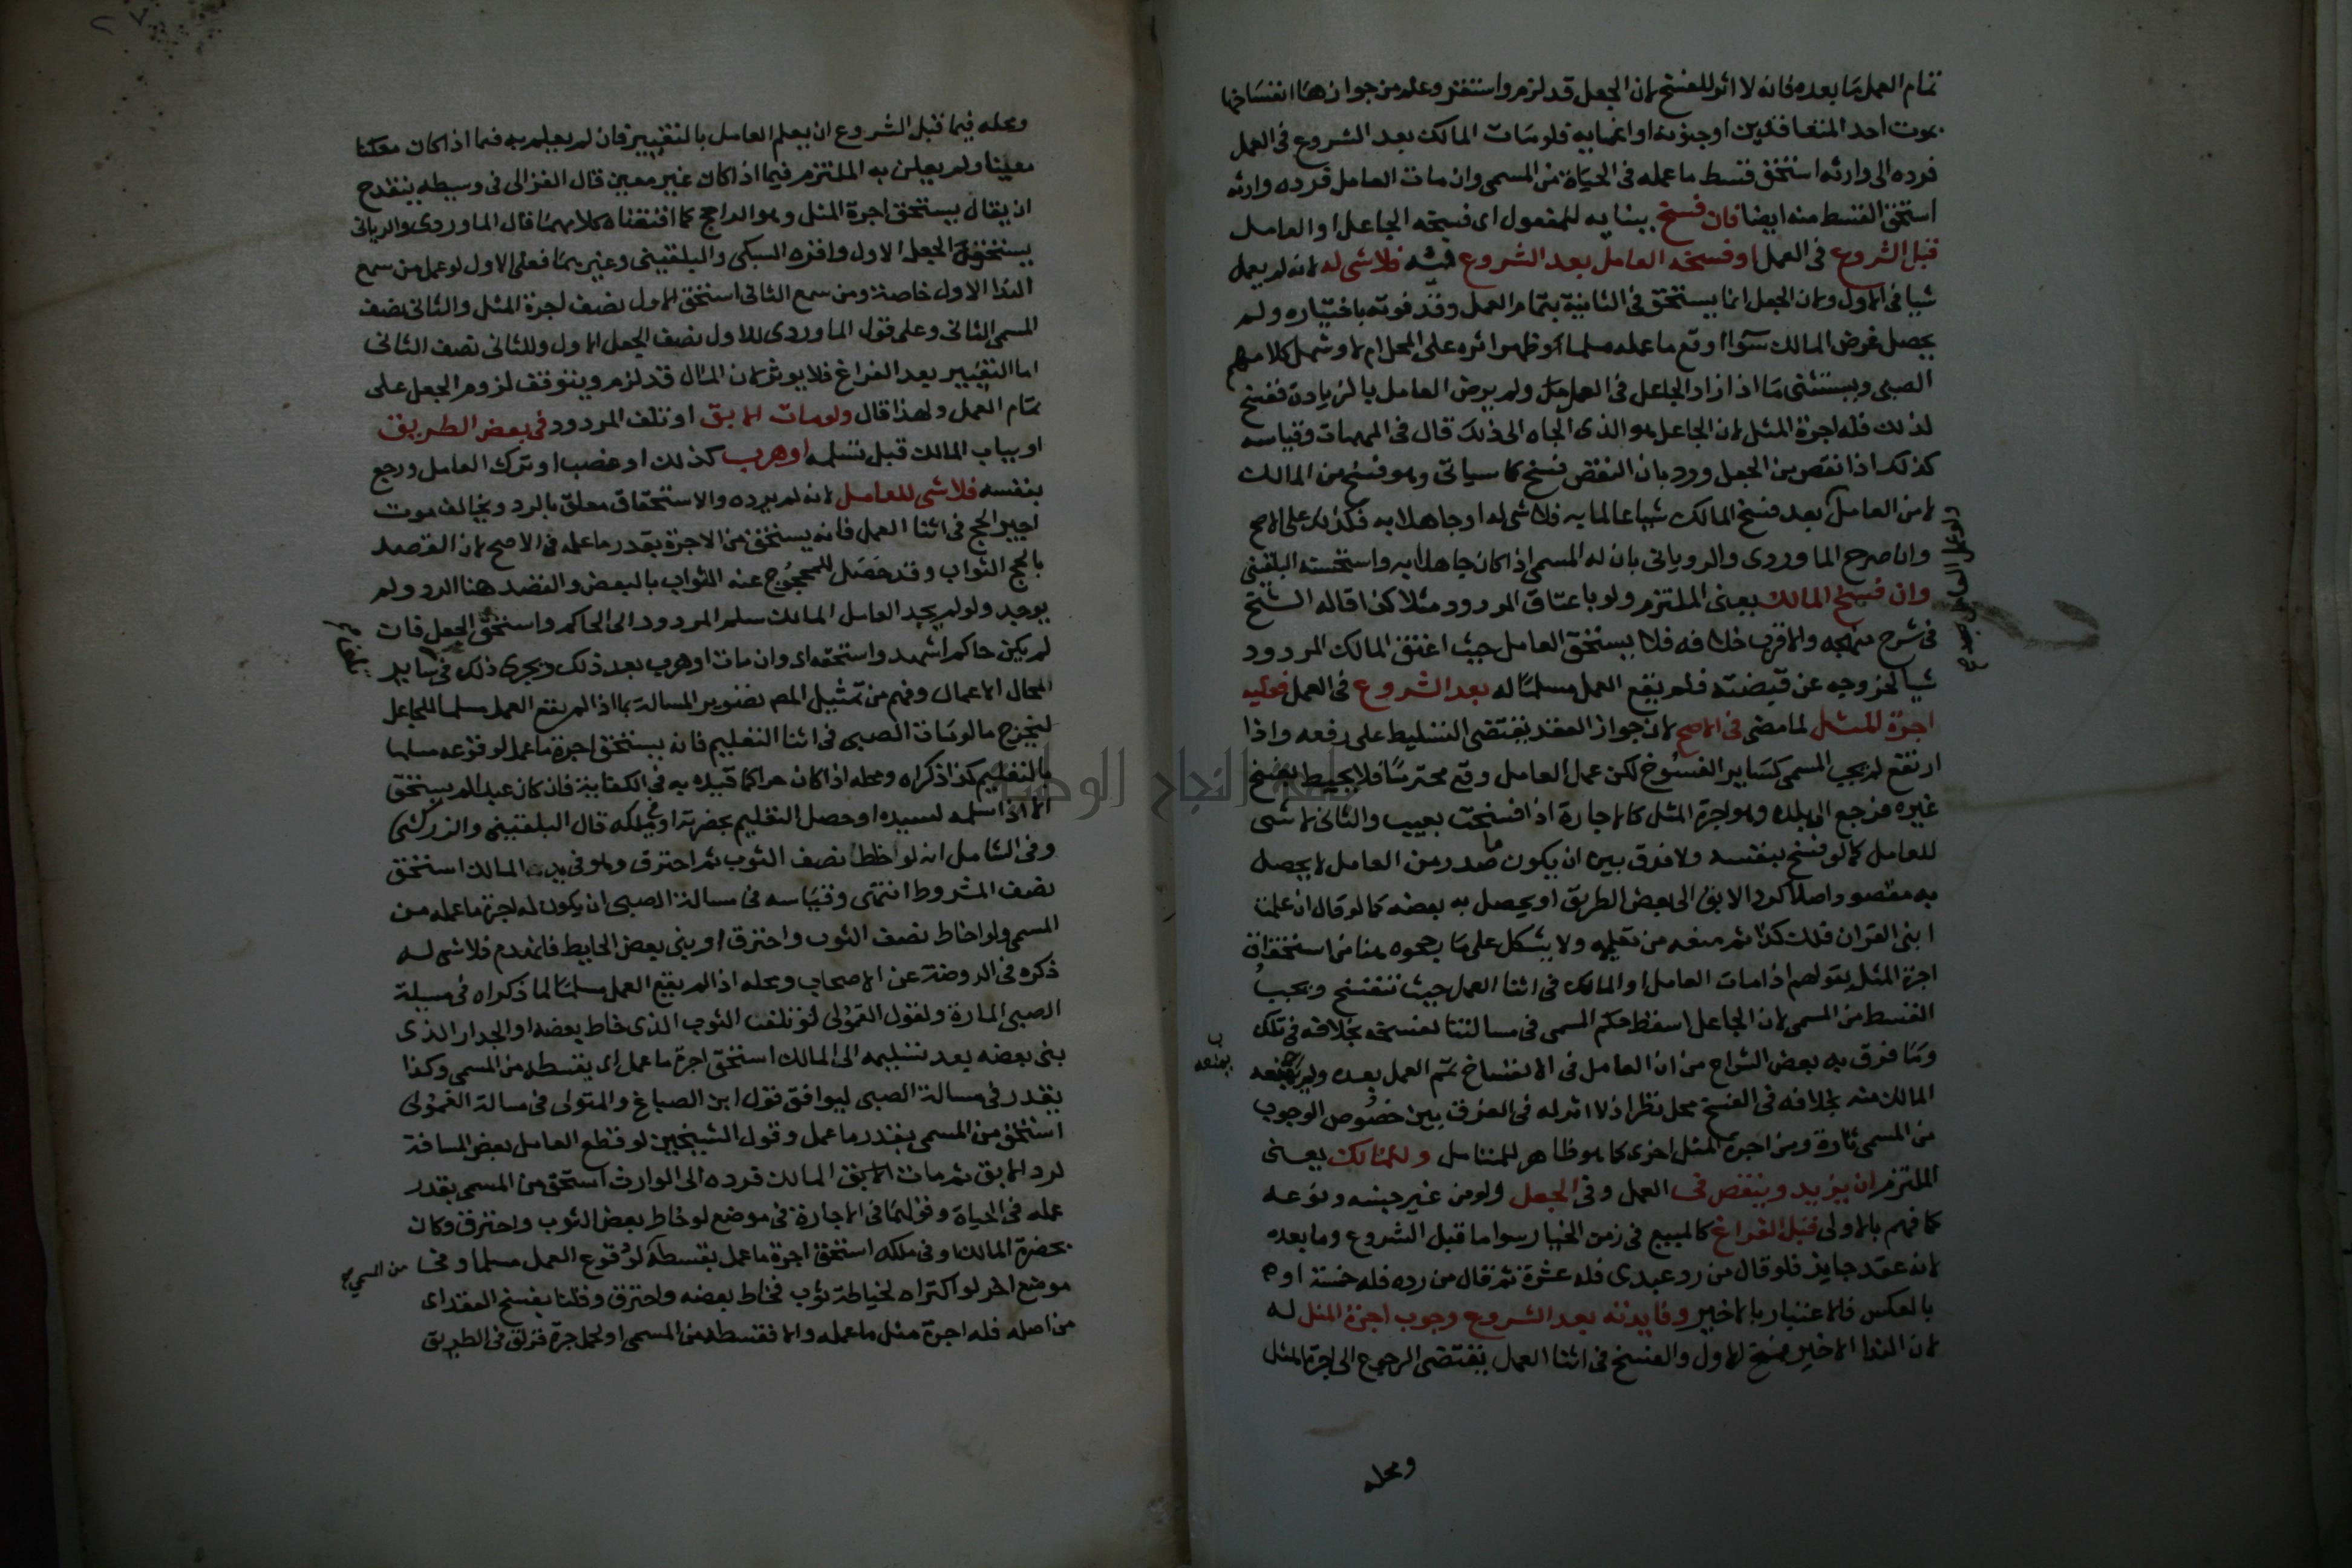 تمام العمل ما بعده فانه لا اثر للفسخ لان الجعل قد لزم واستقر وعلم من جوازهما انفساخها
بموت احد المتعاقدين او جنونه او اغمايه فلو مات المالك بعد الشروع في العمل
فرده الى وارثه استحق قسط ما عمله في الحياة من المسمى وان مات العامل فرده وارثه
استحق القسط منه ايضا فان فسخ ببنايه للمفعول اى فسخه الجاعل او العامل
قبل الشروع في العمل او فسخه العامل بعد الشروع فيه فلا شى له لانه لم يعمل
شيا في الاول ولان الجعل انما يستحق في الثانية بتمام العمل وقد فوته باختياره ولم
يحصل غرض المالك سوا اوقع ما عمله مسلما وظهر اثره على المحل ام لا وشمل كلامهم
الصبى ويستثنى ما اذا زاد الجاعل في العمل ولم يرض العامل بالزيادة ففسخ
لذلك فله اجرة المثل لان الجاعل هو الذى الجاه الى ذلك قال في المهمات وقياسه
كذلك اذا نقص من الجعل ورد بان النقص فسخ كما سياتى وهو فسخ من المالك
لا من العامل بعد فسخ المالك شيا عالما به فلا شى له او جاهلا به فكذلك على الاصح
وان صرح الماوردى والرويانى بان له المسمى اذا كان جاهلا به واستحسنه البلقينى
وان فسخ المالك يعنى الملتزم ولو باعتاق المردود مثلا كذا قاله الشيخ
في شرح منهجه والاقرب خلافه فلا يستحق العامل حيث اعتق المالك المردود
شيا لخروجه عن قبضته فلم يقع العمل مسلما له بعد الشروع في العمل فعليه
اجرة المثل لما مضى في الاصح لان جواز العقد يقتضى التسليط على رفعه واذا
ارتفع لم يجب المسمى كساير الفسوخ لكن عمل العامل وقع محترما فلا يحبط بفسخ
غيره فرجع الى بدله وهو اجرة المثل كالاجارة اذا فسخت بعيب والثانى لا شى
للعامل كما لو فسخ بنفسه ولا فرق بين ان يكون ما صدر من العامل لا يحصل
به مقصود اصلا كرد الابق الى بعض الطريق او يحصل به بعضه كما لو قال ان علمت
ابنى القران فلك كذا ثم منعه من تعليمه ولا يشكل على ما رجحوه هنا من استحقاق
اجرة المثل بقولهم اذا مات العامل او المالك في اثنا العمل حيث تنفسخ ويجب
القسط من المسمى لان الجاعل اسقط حكم المسمى في مسالتنا بفسخه بخلافه في تلك
وما فرق به بعض الشراح من ان العامل في الانفساخ تمم العمل بعده ولم يمنعه
المالك منه بخلافه في الفسخ محل نظر اذ لا اثر له في الفرق بين خصوص الوجوب
من المسمى تارة ومن اجرة المثل اخرى كما هو ظاهر للمتامل وللمالك يعنى
الملتزم ان يزيد وينقص في العمل وفي الجعل ولو من غير جنسه ونوعه
كما فهم بالاولى قبل الفراغ كالمبيع في زمن الخيار سوا ما قبل الشروع وما بعده
لانه عقد جايز فلو قال من رد عبدى فله عشرة ثم قال من رده فله خمسة او
بالعكس فالاعتبار بالاخير وفايدته بعد الشروع وجوب اجرة المثل له
لان الندا الاخير فسخ للاول والفسخ في اثنا العمل يقتضى الرجوع الى اجرة المثل
ومحله
ومحله فيما قبل الشروع ان يعلم العامل بالتغيير فان لم يعلم به فيما اذا كان
معينا ولم يعلن به الملتزم فيما اذا كان غير معين قال الغزالى في وسيطه ينقدح
ان يقال يستحق اجرة المثل وهو الراجح كما اقتضاه كلامهما قال الماوردى والرويانى
يستحق الجعل الاول واقره السبكى والبلقينى وغيرهما فعلى الاول لو عمل من سمع
الندا الاول خاصة ومن سمع الثانى استحق الاول نصف اجرة المثل والثانى نصف
المسمى الثانى وعلى قول الماوردى للاول نصف الجعل الاول وللثانى نصف الثانى
اما التغيير بعد الفراغ فلا يوثر لان المال قد لزم ويتوقف لزوم الجعل على
تمام العمل ولهذا قال ولو مات الابق او تلف المردود في بعض الطريق
او بباب المالك قبل تسلمه او هرب كذلك او غصب او ترك العامل ورجع
بنفسه فلا شى للعامل لانه لم يرده والاستحقاق معلق بالرد ويخالف موت
اجير الحج في اثنا العمل فانه يستحق من الاجرة بقدر ما عمله في الاصح لان القصد
بالحج الثواب وقد حصل للمحجوج عنه الثواب بالبعض والقصد هنا الرد ولم
يوجد ولو لم يجد العامل المالك سلم المردود الى الحاكم واستحق الجعل فان
لم يكن حاكم اشهد واستحقه اى وان مات او هرب بعد ذلك ويجرى ذلك في ساير
محال الاعمال وفهم من تمثيل المص تصوير المسالة بما اذا لم يقع العمل مسلما للجاعل
ليخرج ما لو مات الصبى في اثنا التعليم فانه يستحق اجرة ما عمل لوقوعه مسلما
بالتعليم كذا ذكراه ومحله اذا كان حرا كما قيده به في الكفاية فان كان عبدا لم يستحق
الا اذا سلمه لسيده او حصل التعليم بحضرته او في ملكه قاله البلقينى والزركشى
وفي الشامل انه لو خاط نصف الثوب ثم احترق وهو في يد المالك استحق
نصف المشروط انتهى وقياسه في مسالة الصبى ان يكون له اجرة ما عمله من
المسمى ولو خاط نصف الثوب واحترق او بنى بعض الحايط فانهدم فلا شى له
ذكره في الروضة عن الاصحاب ومحله اذا لم يقع العمل مسلما لما ذكراه في مسيلة
الصبى المارة ولقول القمولى لو تلف الثوب الذى خاط بعضه او الجدار الذى
بنى بعضه بعد تسليمه الى المالك استحق اجرة ما عمل اى بقسطه من المسمى وكذا
يقدر في مسالة الصبى ليوافق قول ابن الصباغ والمتولى في مسالة القمولى
استحق من المسمى بقدر ما عمل وقول الشيخين لو قطع العامل بعض المسافة
لرد الابق ثم مات الابق المالك فرده الى الوارث استحق من المسمى بقدر
عمله في الحياة وقولهما في الاجارة في موضع لو خاط بعض الثوب واحترق وكان
بحضرة المالك او في ملكه استحق اجرة ما عمل بقسطه لوقوع العمل مسلما وفي
من المسمى صح
موضع اخر لو اكتراه لخياطة ثوب فخاط بعضه واحترق وقلنا بفسخ العقد اى
من اصله فله اجرة مثل ما عمله والا فقسطه من المسمى او لحمل جرة فزلق في الطريق
جامعة النجاح الوطنية